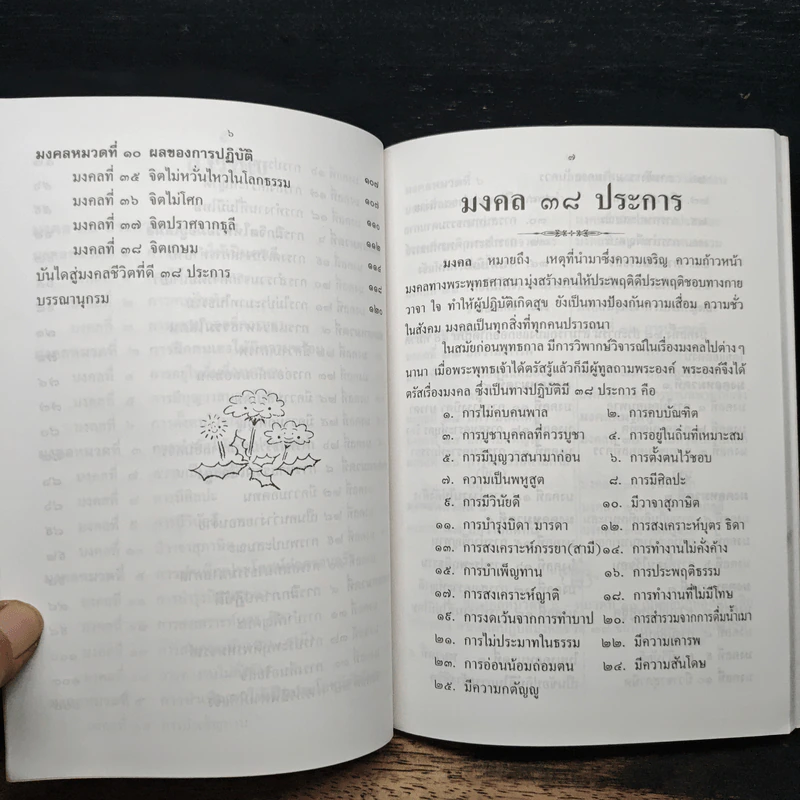 ๖
มงคลหมวดที่ ๑๐ ผลของการปฏิบัติ ๑๐๗
มงคลที่ ๓๕ จิตไม่หวั่นไหวในโลกธรรม ๑๐๗
มงคลที่ ๓๖ จิตไม่โศก ๑๑๐
มงคลที่ ๓๗ จิตปราศจากธุลี ๑๑๒
มงคลที่ ๓๘ จิตเกษม ๑๑๔
บันไดสู่มงคลชีวิตที่ดี ๓๘ ประการ ๑๑๘
บรรณานุกรม ๑๒๐
๗
มงคล ๓๘ ประการ
มงคล หมายถึง เหตุที่นำมาซึ่งความเจริญ ความก้าวหน้า
มงคลทางพระพุทธศาสนามุ่งสร้างคนให้ประพฤติดีประพฤติชอบทางกาย
วาจา ใจ ทำให้ผู้ปฏิบัติเกิดสุข ยังเป็นทางป้องกันความเสื่อม ความชั่ว
ในสังคม มงคลเป็นทุกสิ่งที่ทุกคนปรารถนา
ในสมัยก่อนพุทธกาล มีการวิพากษ์วิจารณ์ในเรื่องมงคลไปต่างๆ
นานา เมื่อพระพุทธเจ้าได้ตรัสรู้แล้วก็มีผู้ทูลถามพระองค์ พระองค์จึงได้
ตรัสเรื่องมงคล ซึ่งเป็นทางปฏิบัติมี ๓๘ ประการ คือ
๑. การไม่คบคนพาล ๒. การคบบัณฑิต
๓. การบูชาบุคคลที่ควรบูชา ๔. การอยู่ในถิ่นที่เหมาะสม
๕. การมีบุญวาสนามาก่อน ๖. การตั้งตนไว้ชอบ
๗. ความเป็นพหูสูต ๘. การมีศิลปะ
๙. การมีวินัยดี ๑๐. มีวาจาสุภาษิต
๑๑. การบำรุงบิดา มารดา ๑๒. การสงเคราะห์บุตร ธิดา
๑๓. การสงเคราะห์ภรรยา(สามี) ๑๔. การทำงานไม่คั่งค้าง
๑๕. การบำเพ็ญทาน ๑๖. การประพฤติธรรม
๑๗. การสงเคราะห์ญาติ ๑๘. การทำงานที่ไม่มีโทษ
๑๙. การงดเว้นจากการทำบาป ๒๐. การสำรวมจากการดื่มน้ำเมา
๒๑. การไม่ประมาทในธรรม ๒๒. มีความเคารพ
๒๓. การอ่อนน้อมถ่อมตน ๒๔. มีความสันโดษ
๒๕. มีความกตัญญู